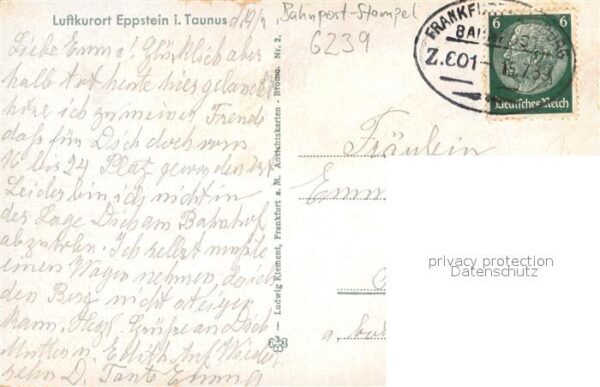 Luftkurort Eppstein i. Taunus d. 12/7
Liebe Emma! Glücklich aber
halb tot heute hier gelandet
höre ich zu meiner Freude
daß für Dich doch vom
16 bis 24 Platz geworden ist
Leider bin ich nicht in
der Lage Dich am Bahnhof
abzuholen. Ich selbst mußte
einen Wagen nehmen, da ich
den Berg nicht steigen
kann. Herzl. Grüße an Dich
Mutter u. Edith. Auf Wieder
sehn D. Tante Emma
Ludwig Klement, Frankfurt a. M. Ansichtskarten - Bromo. Nr. 2.
"Bahnpost-Stempel
6239
FRANKFURT
BAHNPOST
Z.601
6 6
Deutsches Reich
Fräulein
Emm
privacy protection
Datenschutz